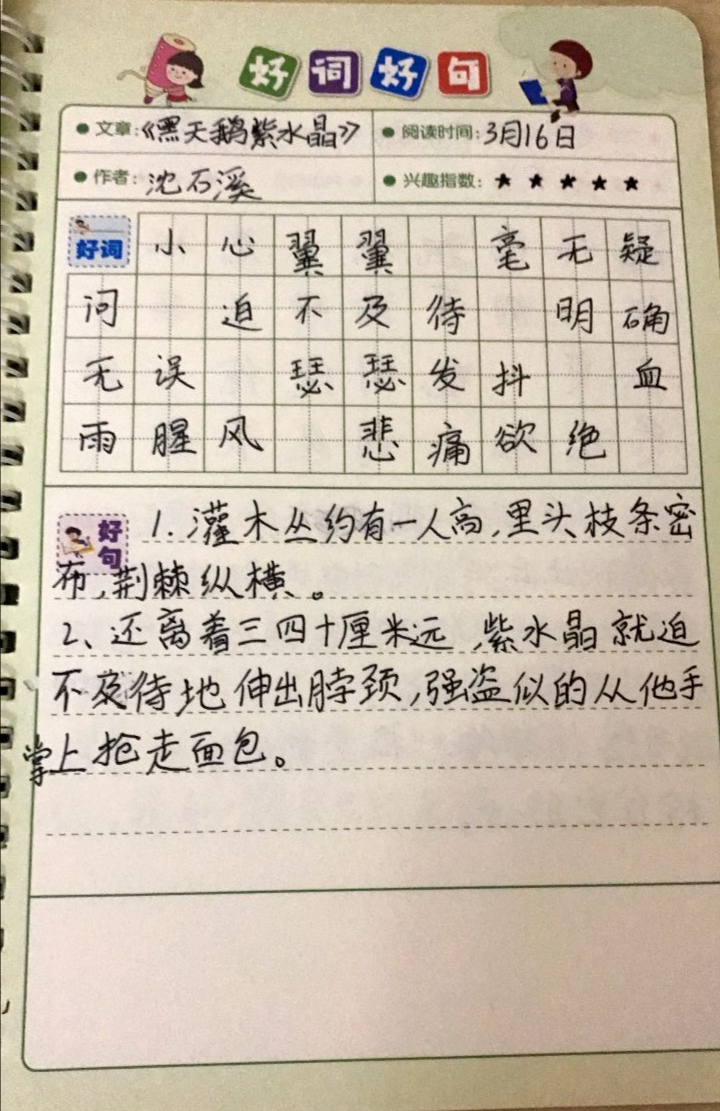 好词好句
文章:《黑天鹅紫水晶》 阅读时间:3月16日
作者:沈石溪 兴趣指数:★★★★★
好词 小心翼翼 毫无疑
问 迫不及待 明确
无误 瑟瑟发抖 血
雨腥风 悲痛欲绝
好句 1.灌木丛约有一人高,里头枝条密
布,荆棘纵横。
2、还离着三四十厘米远,紫水晶就迫
不及待地伸出脖颈,强盗似的从他手
掌上抢走面包。